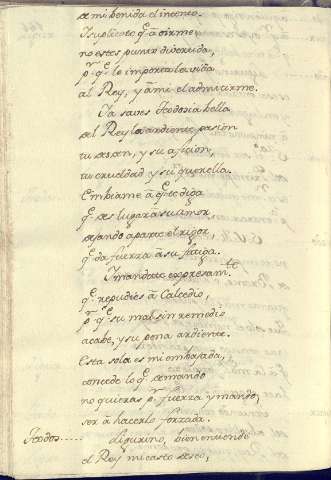 de mi benida el intento.
Y suplicote q̃ a oirme,
no estes punto diberida,
p.r q̃ le importa la vida
al Rey, y à mi el admitirme.
Ya saves Teodosia bella
del Rey la ardiente pasion
tu desden, y su aficion,
tu crueldad y su querella.
Embiame à q̃ te diga
q̃ des lugar a su amor
dejando aparte el rigor,
q̃ da fuerza à su fatiga.
Y mandote expresam.te
q̃ repudies à Calcedio,
p.r q̃ su mal sin remedio
acabe, y su pena ardiente.
Esta sola es mi embajada,
concede lo q̃ demando
no quieras p.r fuerza y mando,
ser à hacerlo forzada.
Teodos..... Ligurino, bien entendo
el Rey mi casto deseo,